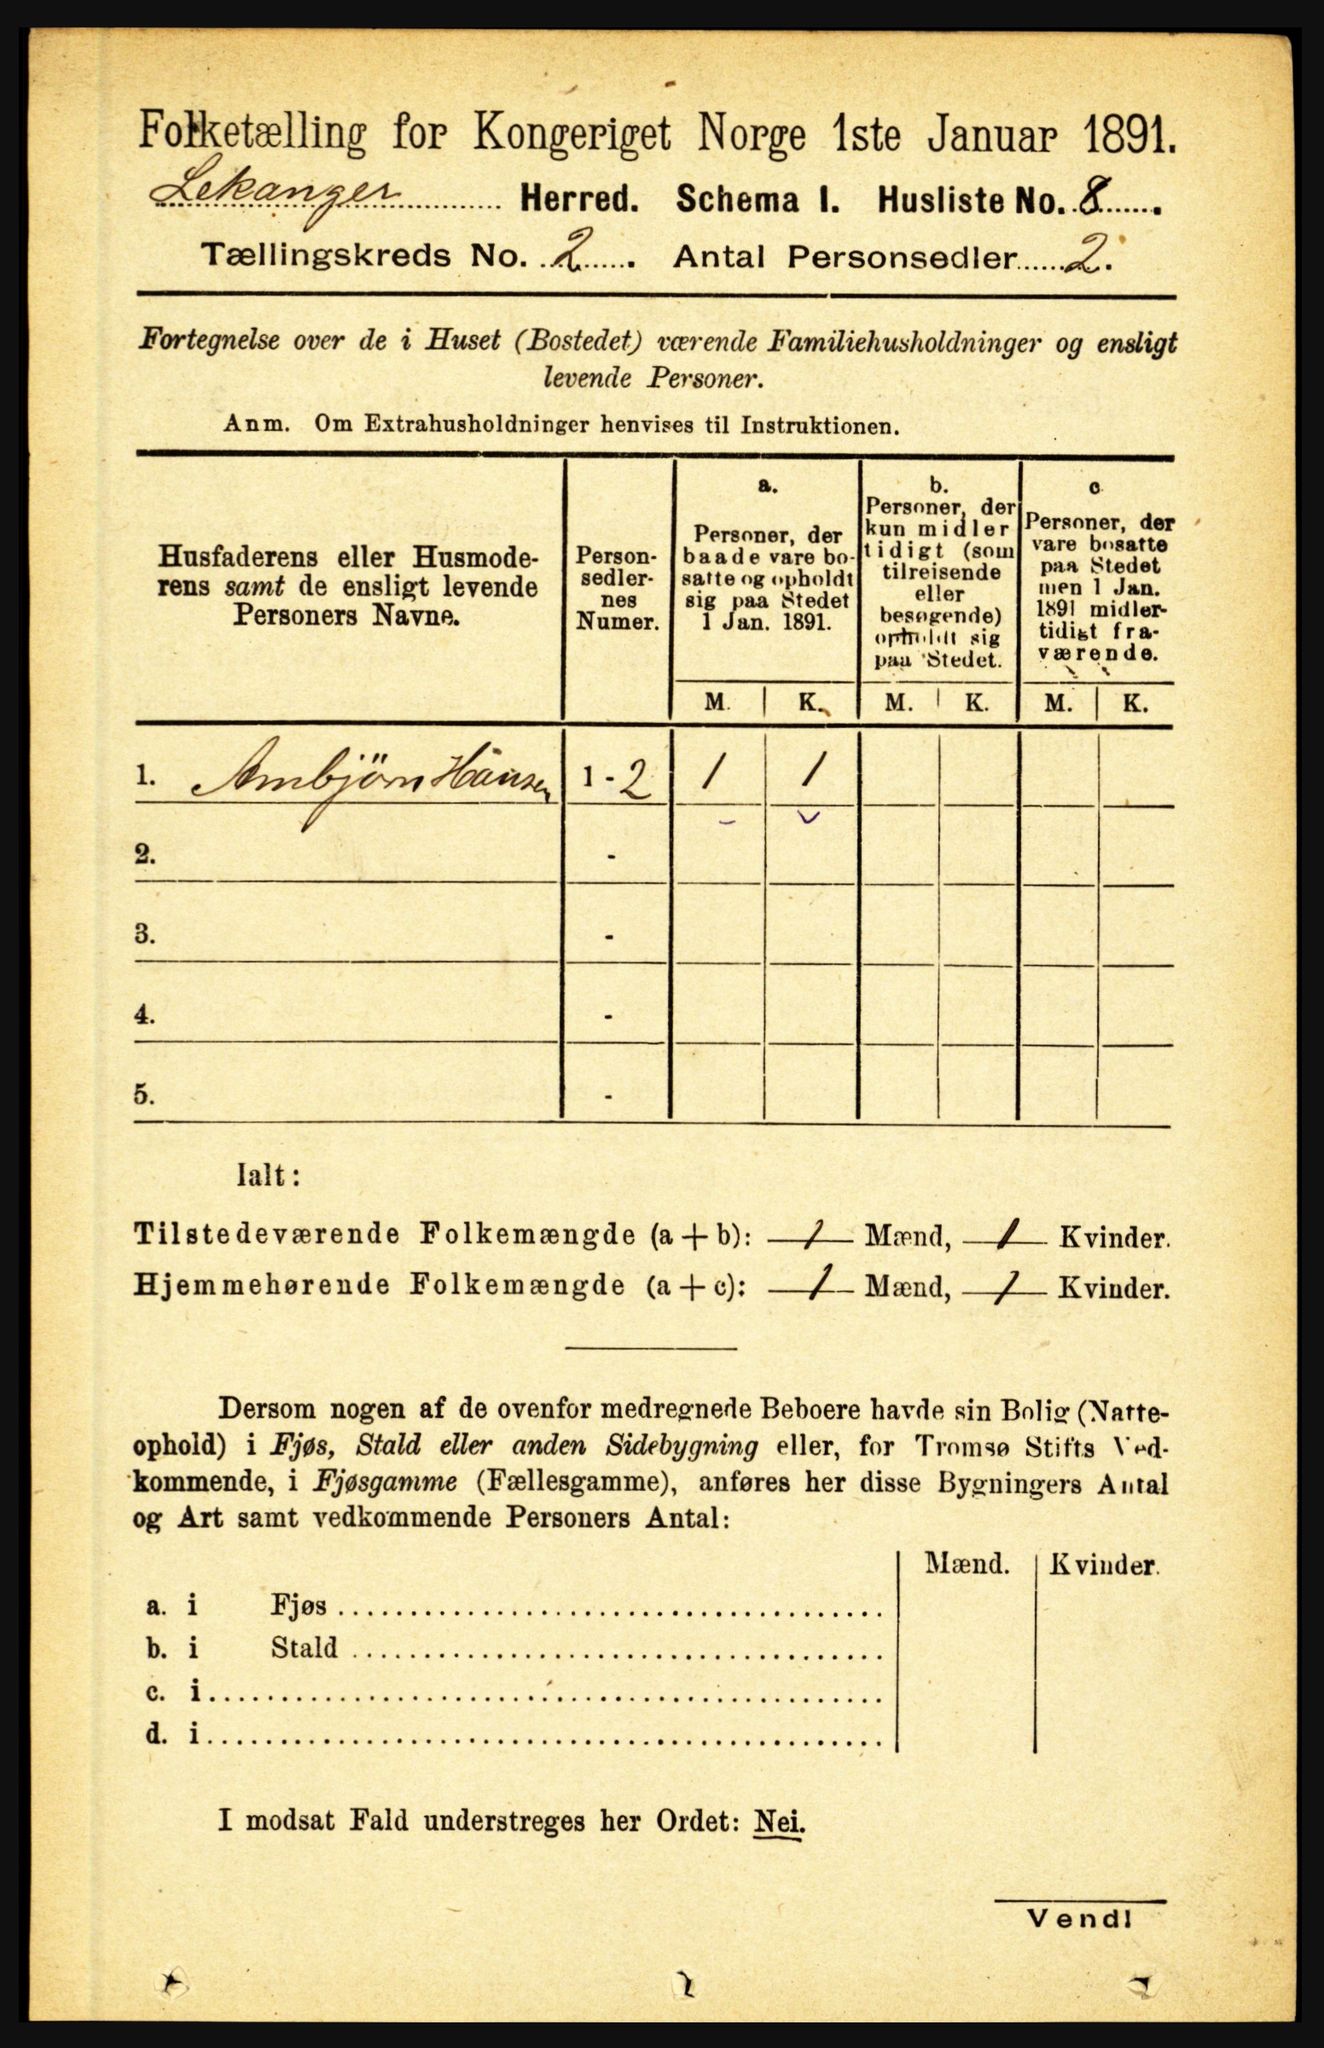 Folketælling for Kongeriget Norge 1ste Januar 1891.
Lekanger Herred. Schema I. Husliste No. 8.
Tællingskreds No. 2. Antal Personsedler 2.
Fortegnelse over de i Huset (Bostedet) værende Familiehusholdninger og ensligt
levende Personer.
Anm. Om Extrahusholdninger henvises til Instruktionen.
Husfaderens eller Husmode-
rens samt de ensligt levende
Personers Navne.
Person-
sedler-
nes
Numer.
a.
Personer, der
baade vare bo-
satte og opholdt
sig paa Stedet
1 Jan. 1891.
b.
Personer, der
kun midler
tidigt (som
tilreisende
eller
besøgende)
opholdt sig
paa Stedet.
c
Personer, der
vare bosatte
paa Stedet
men 1 Jan.
1891 midler-
tidigt fra-
værende.
M. K. M. K. M. K.
1. Ambjörn Hansen 1 - 2 1 1
2. -
3. -
4. -
5. -
Ialt:
Tilstedeværende Folkemængde (a + b): 1 Mænd, 1 Kvinder.
Hjemmehørende Folkemængde (a + c): 1 Mænd, 1 Kvinder.
Dersom nogen af de ovenfor medregnede Beboere havde sin Bolig (Natte-
ophold) i Fjøs, Stald eller anden Sidebygning eller, for Tromsø Stifts Ved-
kommende, i Fjøsgamme (Fællesgamme), anføres her disse Bygningers Antal
og Art samt vedkommende Personers Antal:
Mænd. Kvinder.
a. i Fjøs
b. i Stald
c. i
d. i
I modsat Fald understreges her Ordet: Nei.
Vend!